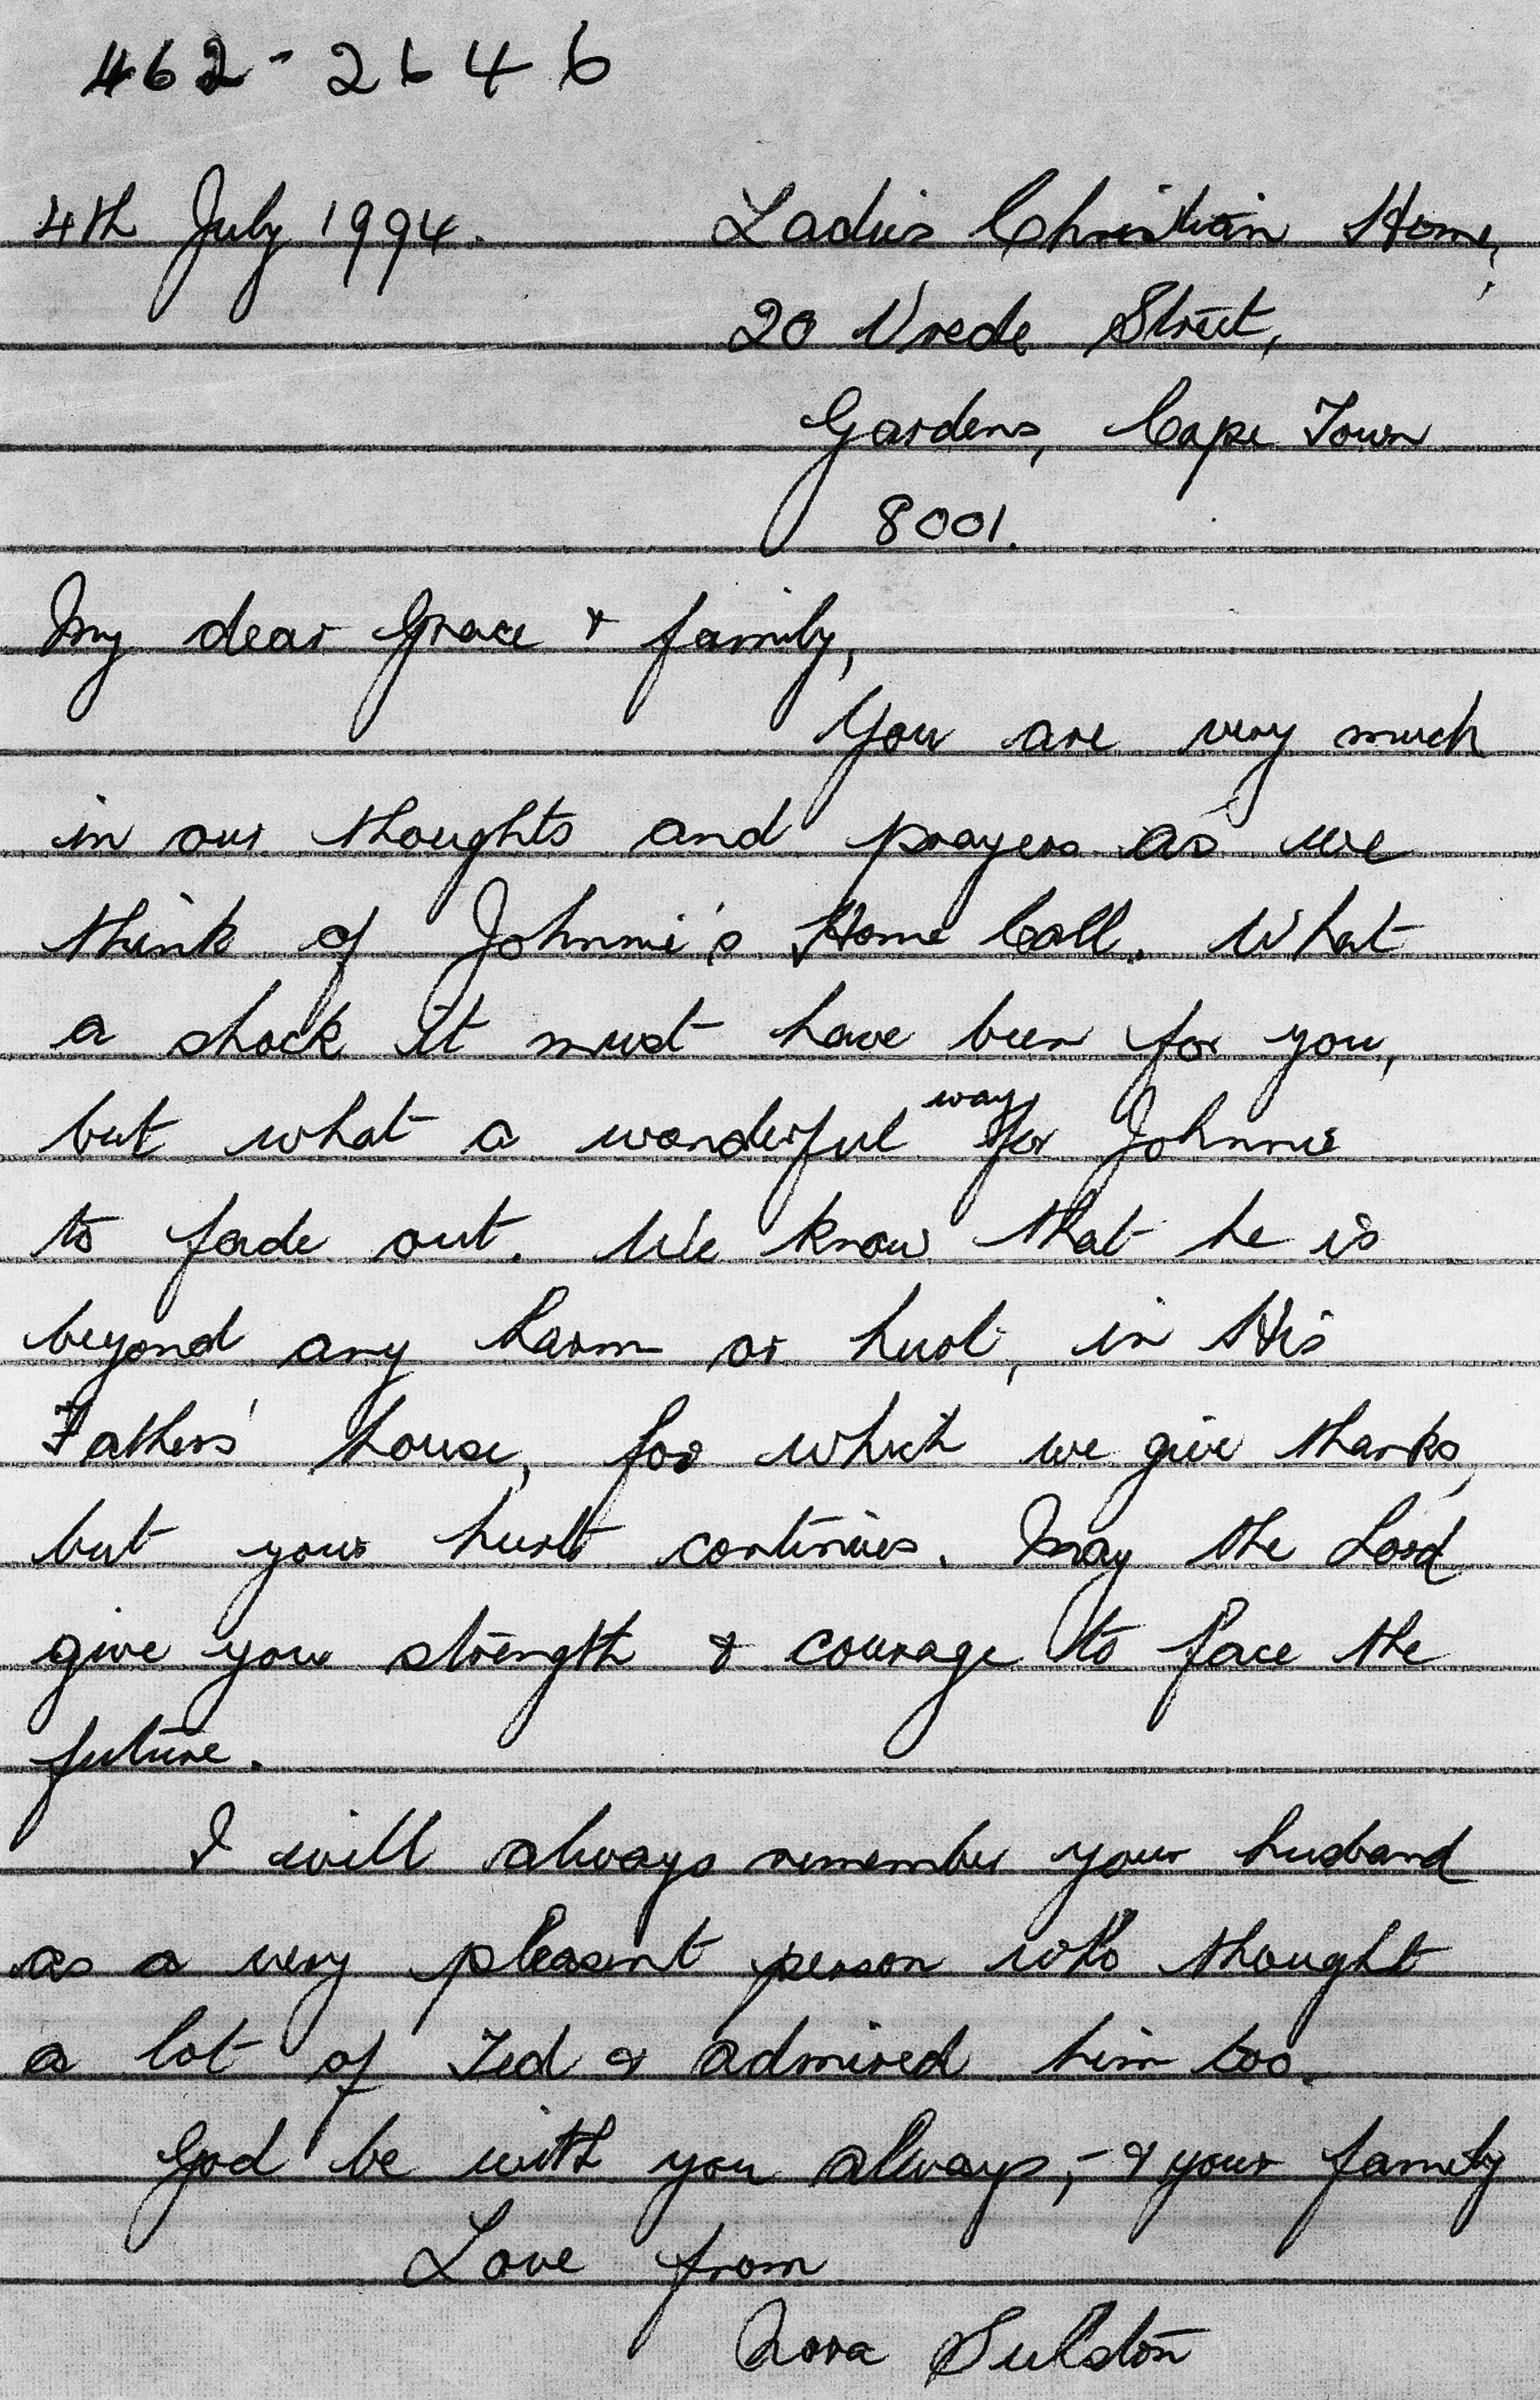 462-2646
4th July 1994. Ladies Christian Home,
20 Vrede Street,
Gardens, Cape Town
8001.
My dear Grace & family,
You are very much
in our thoughts and prayers as we
think of Johnnie's Home Call. What
a shock it must have been for you,
but what a wonderful way for Johnnie
to fade out. We know that he is
beyond any harm or hurt, in His
Fathers' house, for which we give thanks,
but your hurt continues. May the Lord
give you strength & courage to face the
future.
I will always remember your husband
as a very pleasant person who thought
a lot of Ted & admired him too.
God be with you always, - & your family
Love from
Nora Sulston